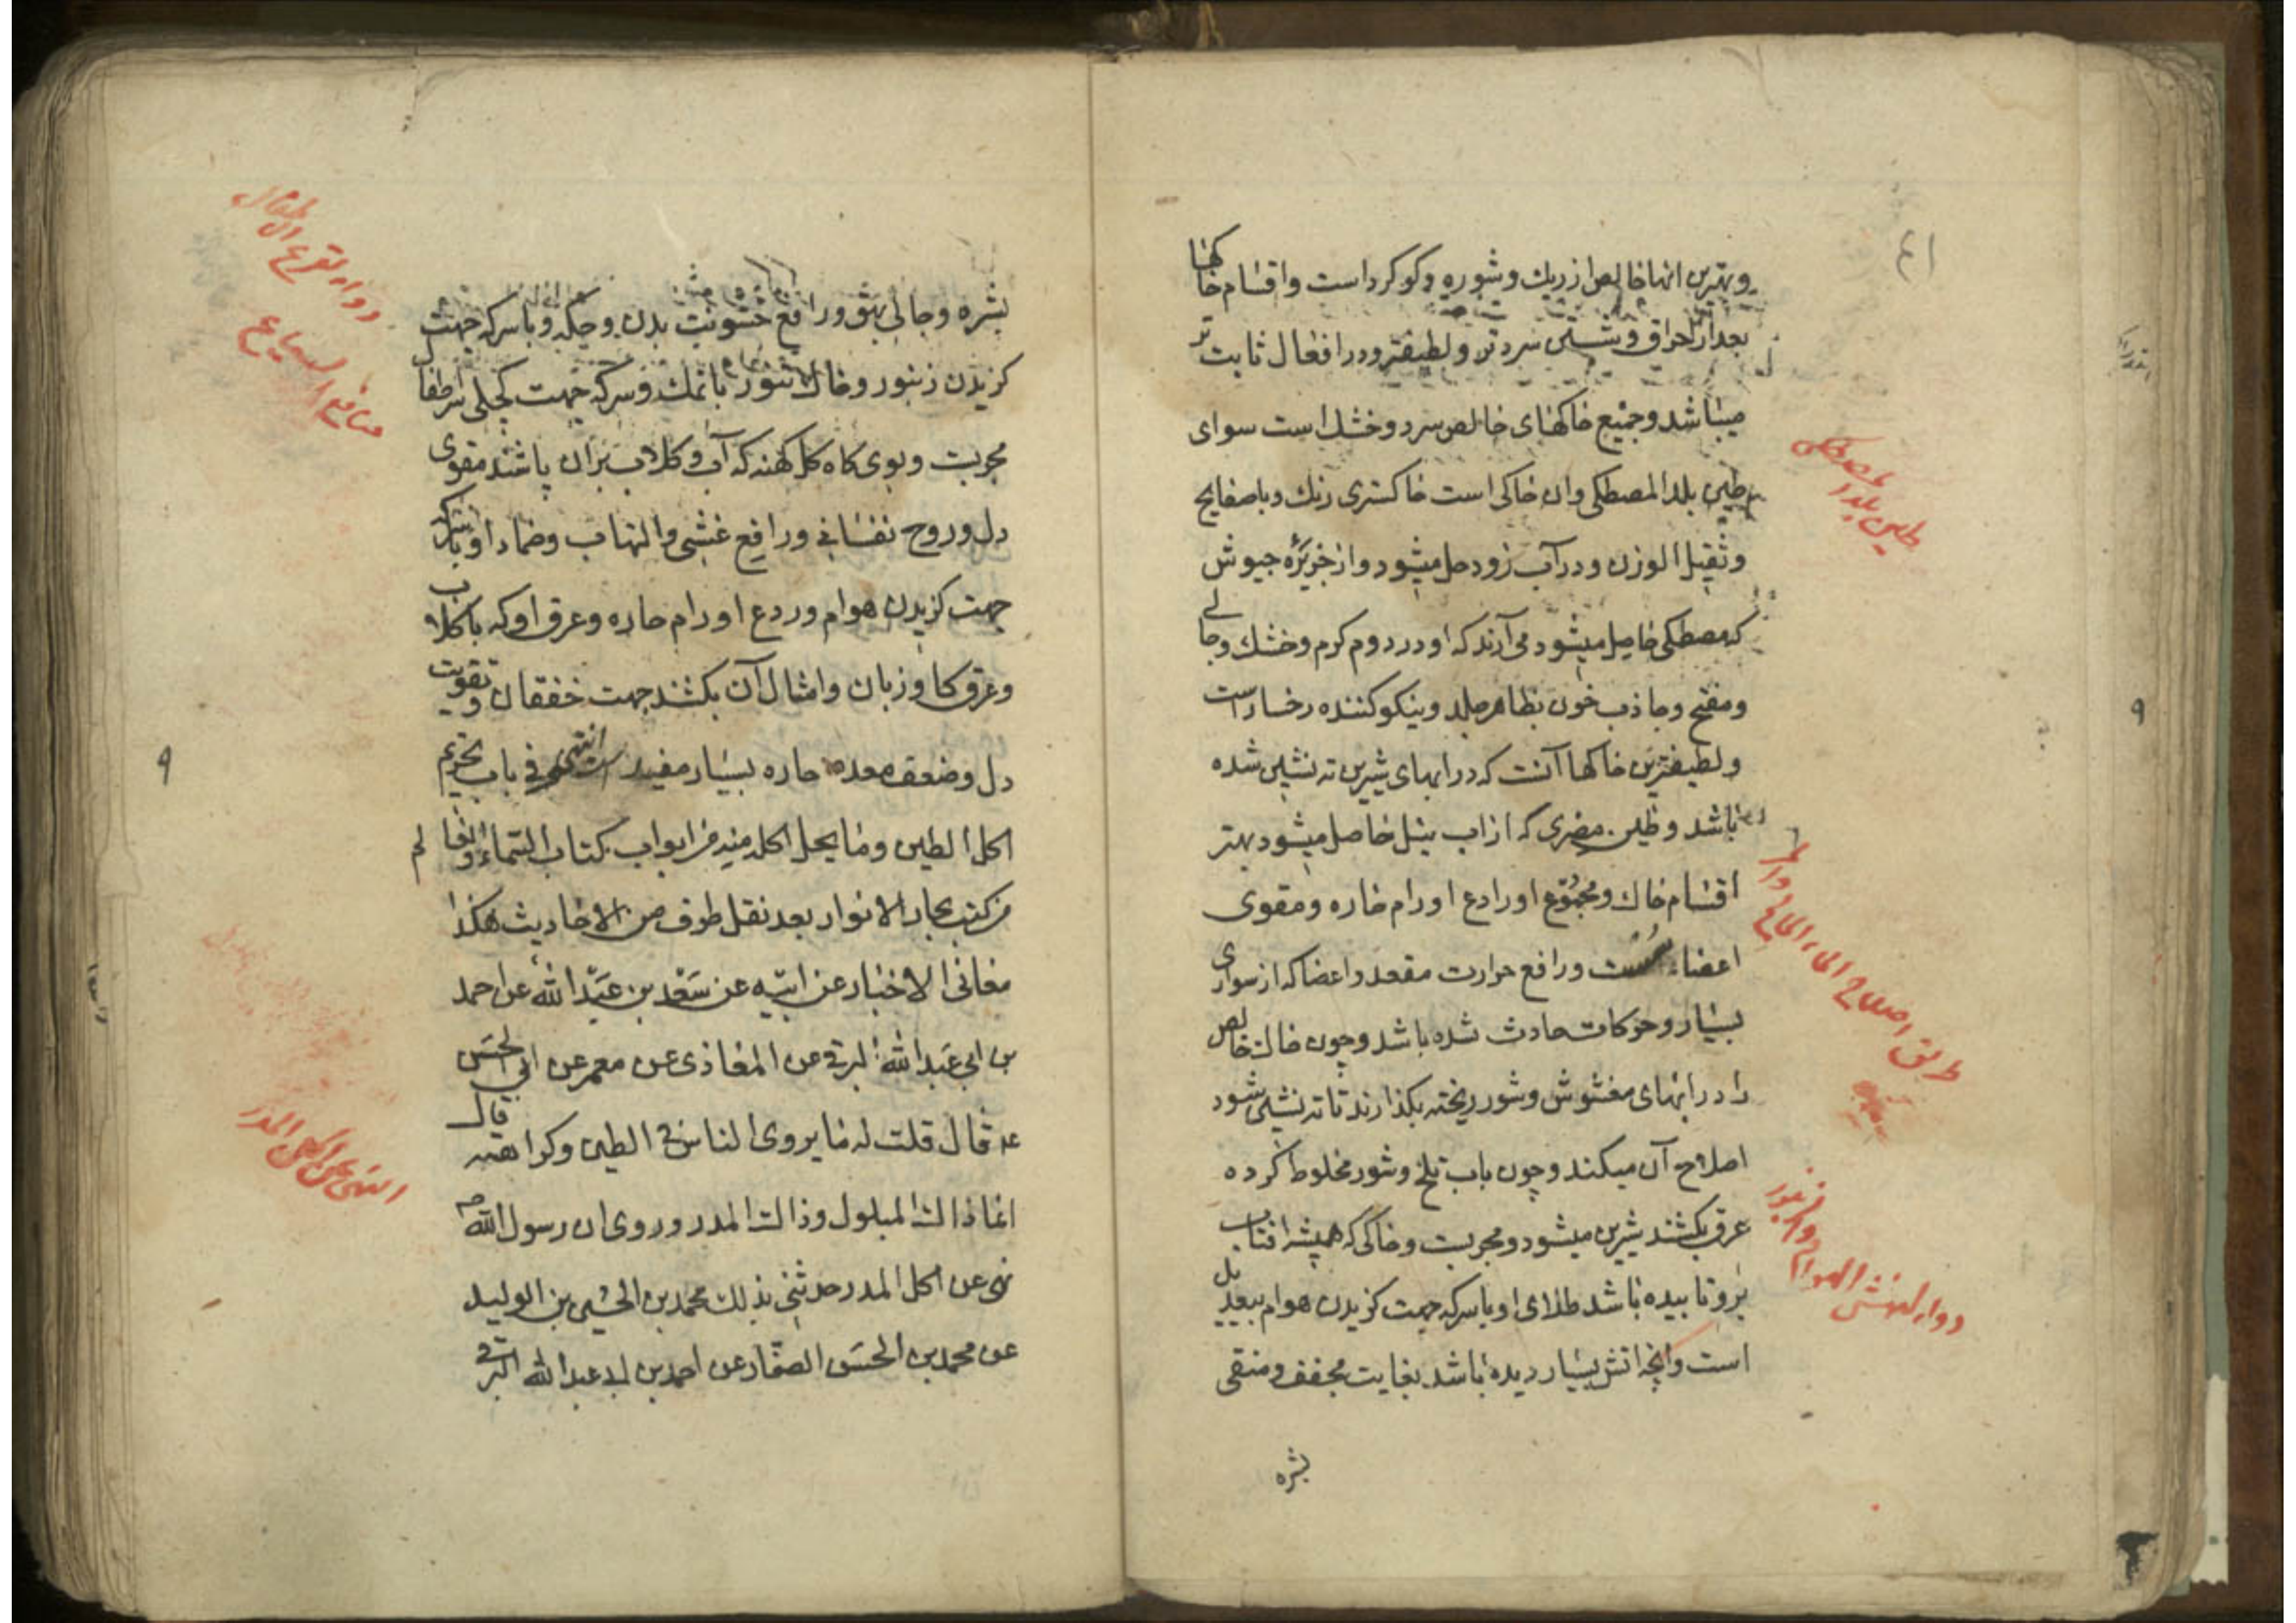 وبهترین انها خالص از ریك وشوره وكوكرد است واقسام خاكها
بعد از احراق وشستن سردتر ولطیفتر ودر افعال ثابت تر
میباشد وجمیع خاكهای خالص سرد وخشك است سوای
طین بلد المصطكی وان خاكی است خاكستری رنك وباصفایح
وثقیل الوزن ودر آب زود حل میشود واز جزیرهٔ جیوش
كه مصطكی حاصل میشود می آرند كه او در دوم كرم وخشك وجالی
ومفتح وجاذب خون بظاهر جلد ونیكو كننده رخسار است
ولطیفترین خاكها آنست كه در ابهای شیرین ته نشین شده
باشد وطین مصری كه از اب نیل حاصل میشود بهتر
اقسام خاك ومجموع او رادع اورام حاره ومقوی
اعضاء سست ورافع حرارت مقعد واعضا كه از سواری
بسیار وحركات حادث شده باشد وچون خاك خالص
را در ابهای مغشوش وشور ریخته بكذارند تا ته نشین شود
اصلاح آن میكند وچون باب تلخ وشور مخلوط كرده
عرق بكشند شیرین میشود ومجربست وخاكی كه همیشه افتاب
برو تابیده باشد طلای او باسركه جهت كزیدن هوام بیعدیل
است وانچه اتش بسیار دیده باشد بغایت مجفف ومنقی
بشره
طین بلد المصطكی
طریق اصلاح الماء المالح والمر
دواء لنهش الهوام والزنبور
٩
بشره وجالی بهق ورافع خشونت بدن وحكه وباسركه جهت
كزیدن زنبور وخاك تنور بانمك وسركه جهت كچلی سر اطفال
مجربست وبوی كاه كل كهنه كه آب وكلاب بران پاشند مقوی
دل وروح نفسانی ورافع غشی والتهاب وضماد او باسركه
جهت كزیدن هوام وردع اورام حاره وعرق او كه باكلاب
وعرق كاوزبان وامثال آن بكشند جهت خفقان وتقویت
دل وضعف معده حاره بسیار مفید است انتهی فی باب تحریم
اكل الطین وما یحل اكله منه من ابواب كتاب السماء والعالم
من كتب بحار الانوار بعد نقل طرف من الاحادیث هكذا
معانی الاخبار عن ابیه عن سعد بن عبد الله عن احمد
بن ابی عبد الله البرقی عن المعاذی عن معمر عن ابی الحسن
ع قال قلت له ما یروی الناس فی الطین وكراهته قال
انما ذاك المبلول وذاك المدر وروی ان رسول الله ص
نهی عن اكل المدر حدثنی بذلك محمد بن الحسن بن الولید
عن محمد بن الحسن الصفار عن احمد بن ابی عبد الله البرقی
دواء لقرع الاطفال
النهی عن اكل المدر
٩